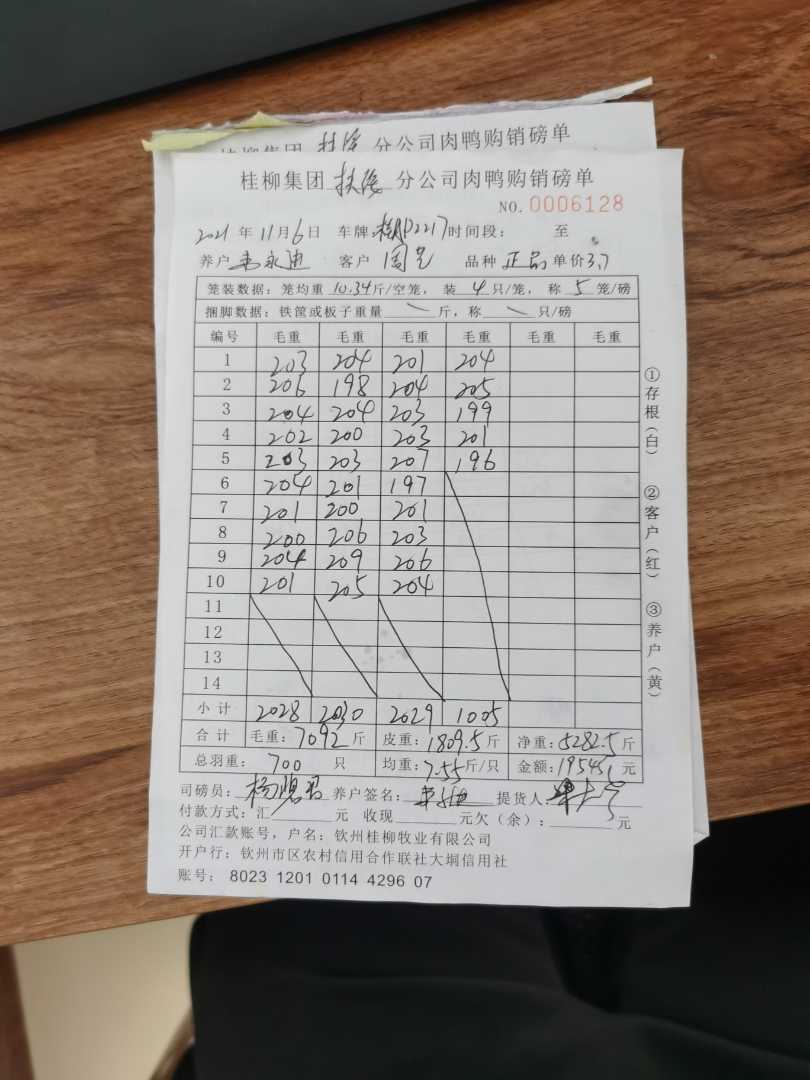 桂柳集团 分公司肉鸭购销磅单
桂柳集团 扶隆 分公司肉鸭购销磅单
NO. 0006128
2021 年 11 月 6 日 车牌: 2217 时间段: 至
养户 韦永迪 客户 周 品种 正品 单价 3.7
笼装数据: 笼均重 10.34 斤/空笼, 装 4 只/笼, 称 5 笼/磅
捆脚数据: 铁筐或板子重量 斤, 称 只/磅
编号 毛重 毛重 毛重 毛重 毛重 毛重
1 203 204 201 204
2 206 198 204 205
3 204 204 203 199
4 202 200 203 201
5 203 203 207 196
6 204 201 197
7 201 200 201
8 200 206 203
9 204 209 206
10 201 205 204
11
12
13
14
小计 2028 2030 2029 1005
合计 毛重: 7092 斤 皮重: 1809.5 斤 净重: 5282.5 斤
总羽重: 700 只 均重: 7.55 斤/只 金额: 19545 元
司磅员: 杨 养户签名: 提货人:
付款方式: 汇 元 收现 元欠(余): 元
公司汇款账号, 户名: 钦州桂柳牧业有限公司
开户行: 钦州市区农村信用合作联社大垌信用社
账号: 8023 1201 0114 4296 07
①存根(白)
②客户(红)
③养户(黄)